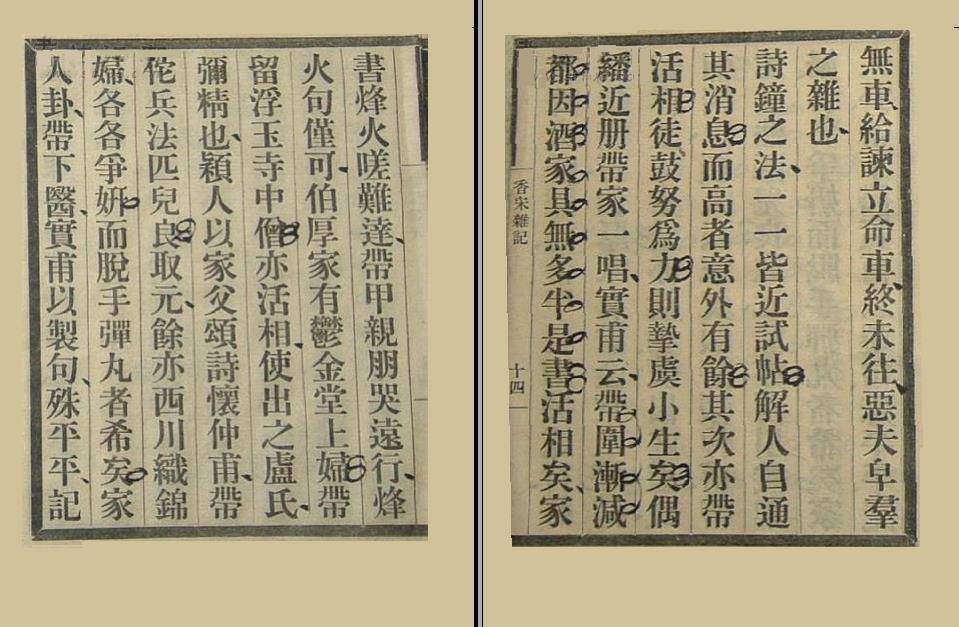 無車給諫立命車終未往惡夫皁羣
之雜也
詩鐘之法一一皆近試帖解人自通
其消息而高者意外有餘其次亦帶
活相徒鼓努爲力則摯虞小生矣偶
繙近册帶家一唱實甫云帶圍漸減
都因酒家具無多半是書活相矣家
香宋雜記
十四
書烽火嗟難達帶甲親朋哭遠行烽
火句僅可伯厚家有鬱金堂上婦帶
留浮玉寺中僧亦活相使出之盧氏
彌精也穎人以家父頌詩懷仲甫帶
佗兵法匹兒良取元餘亦西川織錦
婦各各爭姸而脫手彈丸者希矣家
人卦帶下醫實甫以製句殊平平記